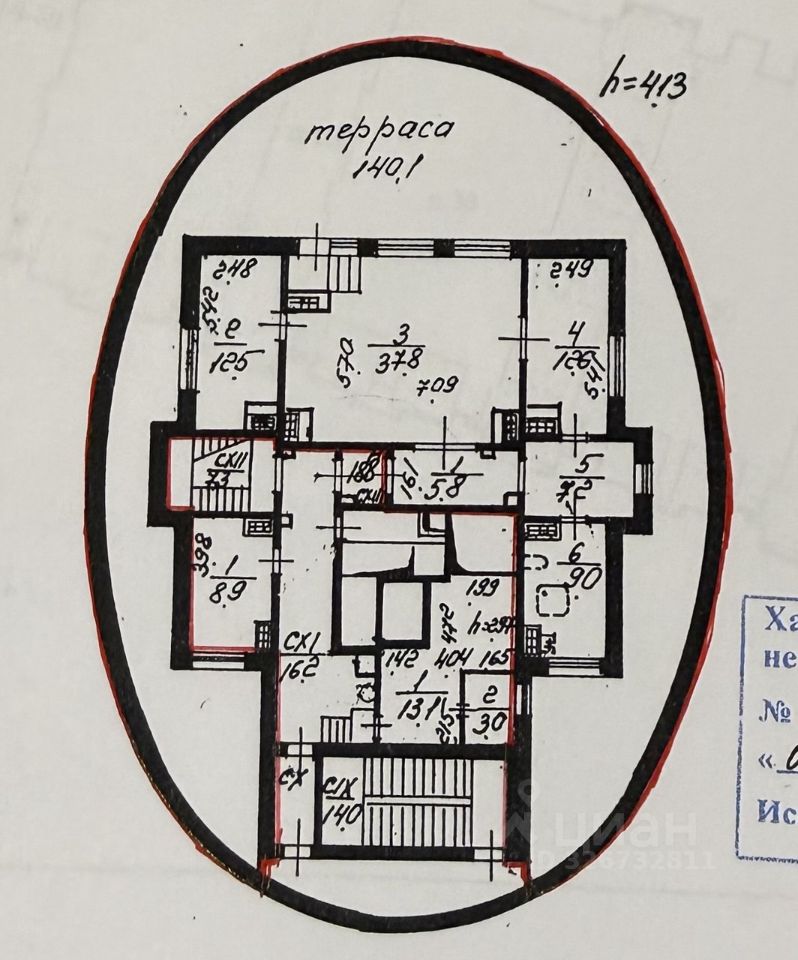 h=4,13
терраса
140,1
2,48
5,42
2
12,5
3
37,8
5,70
7,09
2,49
4
12,6
5,47
СXII
7,3
1,88
СXI
1,61
1
5,8
5
7,2
3,98
1
8,9
6
9,0
1,99
4,72
СXI
16,2
1,42
4,04
1,65
1
13,1
2,15
2
3,0
СX
СIX
14,0
Ха
не
№
«
Ис
циан